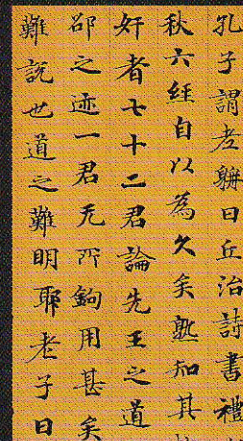 孔子謂老聃曰丘治詩書禮
秋六經自以為久矣孰知其
奸者七十二君論先王之道
邵之迹一君无所鉤用甚矣
難說也道之難明耶老子曰